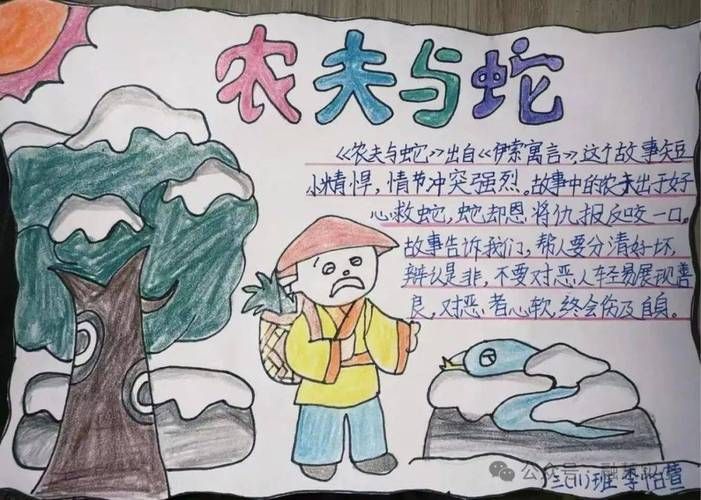 农夫与蛇
《农夫与蛇》出自《伊索寓言》，这个故事短
小精悍，情节冲突强烈。故事中的农夫出于好
心救蛇，蛇却恩将仇报反咬一口。
故事告诉我们，帮人要分清好坏，
辨认是非，不要对恶人轻易展现善
良，对恶者心软，终会伤及自身。
公众号
三(1)班 李怡萱